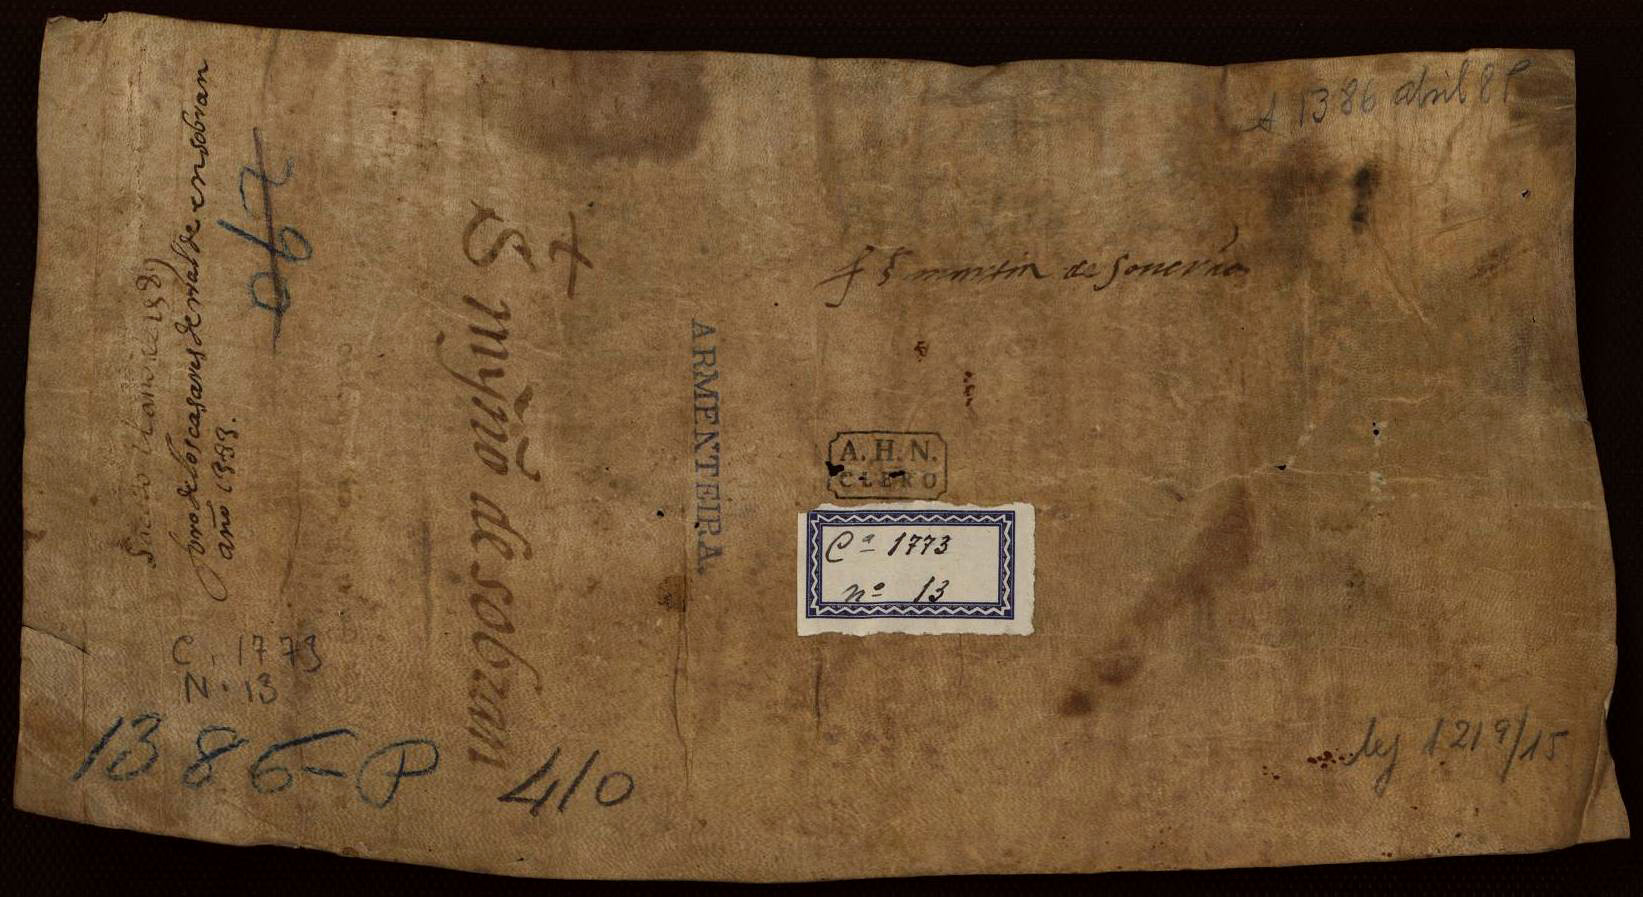 A 1386 abril 8 P
f S martin de
ARMENTEIRA.
A. H. N.
CLERO
Cª 1773
nº 13
leg 1219/15
+
S myño de sobran
foro de los casares de rial de en sobran
año 1383.
C. 1773
N. 13
1386-P
410